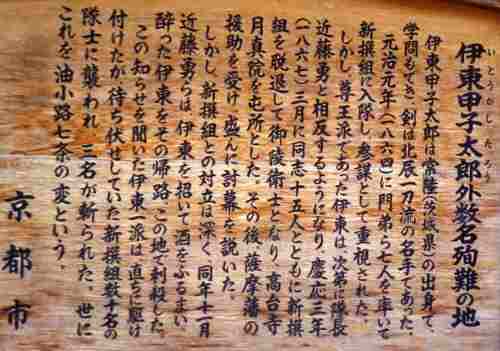 伊東甲子太郎外数名殉難の地
いとうかしたろう
伊東甲子太郎は常陸（茨城県）の出身で、
学問もでき、剣は北辰一刀流の名手であった。
元治元年（一八六四）に門弟ら七人を率いて
新撰組に入隊し、参謀として重視された。
しかし、尊王派であった伊東は、次第に隊長
近藤勇と相反するようになり、慶応三年
（一八六七）三月に同志十五人とともに新撰
組を脱退して御陵衛士となり、高台寺
月真院を屯所とした。その後、薩摩藩の
援助を受け、盛んに討幕を説いた。
しかし、新撰組との対立は深く、同年十一月
近藤勇らは、伊東を招いて酒をふるまい、
酔った伊東をその帰路、この地で刺殺した。
この知らせを聞いた伊東一派は直ちに駆け
付けたが、待ち伏せしていた新撰組数十名の
隊士に襲われ、三名が斬られた。世に
これを「油小路七条の変」という。
京都市